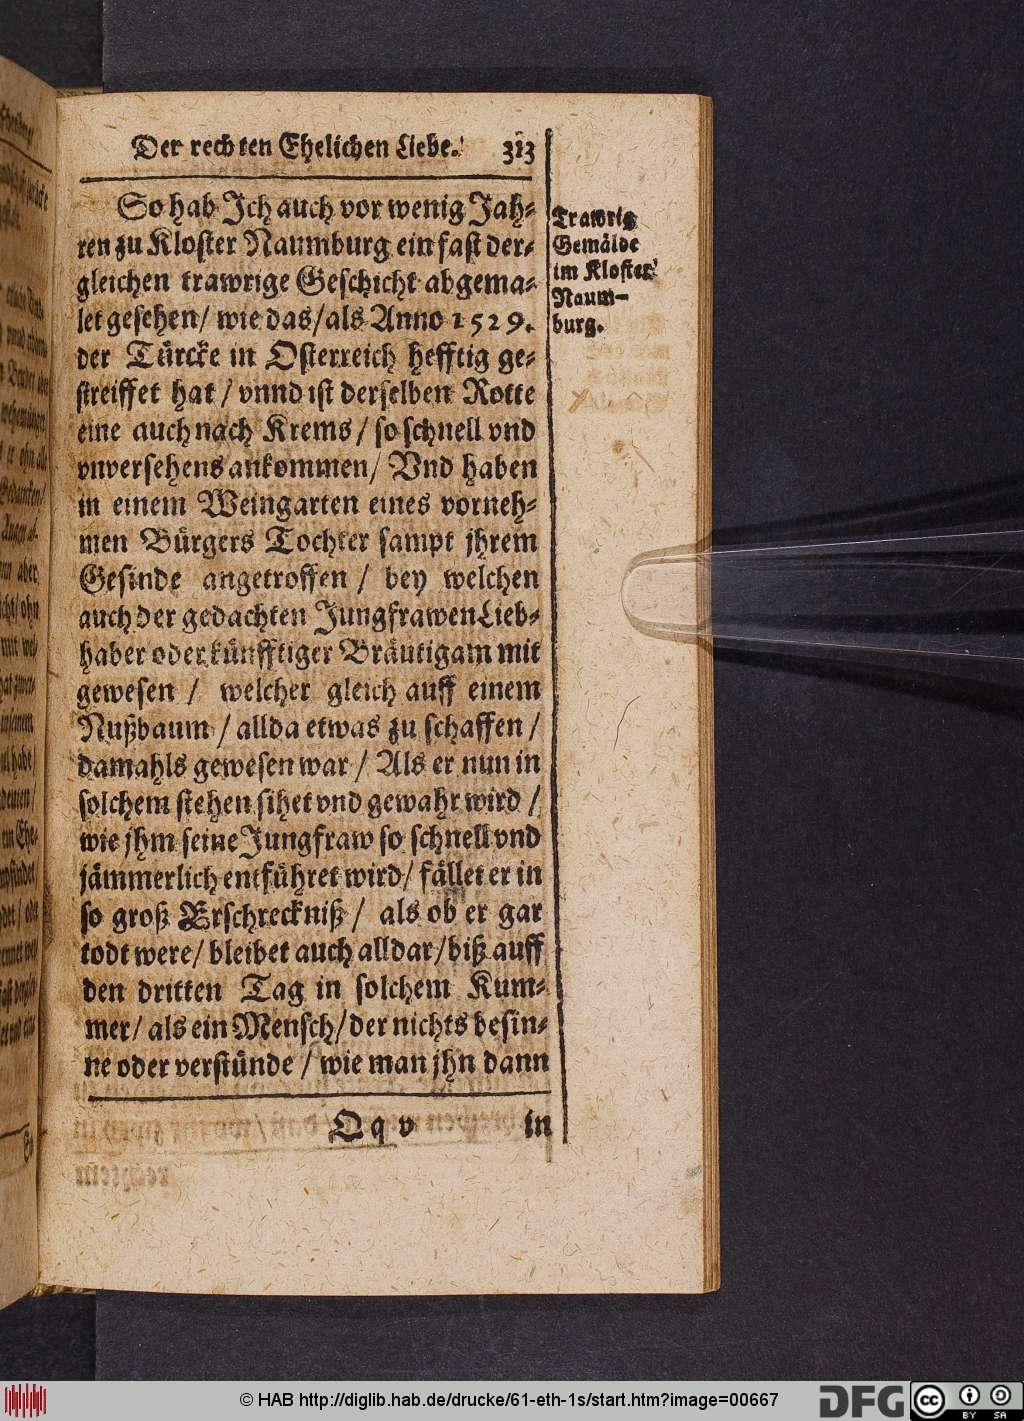 Der rechten Ehelichen Liebe. 313
So hab Ich auch vor wenig Jah-
ren zu Kloster Naumburg ein fast der-
gleichen trawrige Geschicht abgema-
let gesehen/ wie das/als Anno 1529.
der Türcke in Osterreich hefftig ge-
streiffet hat / vnnd ist derselben Rotte
eine auch nach Krems / so schnell vnd
vnversehens ankommen/ Vnd haben
in einem Weingarten eines vorneh-
men Bürgers Tochter sampt jhrem
Gesinde angetroffen / bey welchen
auch der gedachten Jungfrawen Lieb-
haber oder künfftiger Bräutigam mit
gewesen / welcher gleich auff einem
Nußbaum / allda etwas zu schaffen /
damahls gewesen war / Als er nun in
solchem stehen sihet vnd gewahr wird /
wie jhm seine Jungfraw so schnell vnd
jämmerlich entführet wird/ fället er in
so groß Erschreckniß / als ob er gar
todt were/ bleibet auch alldar/biß auff
den dritten Tag in solchem Kum-
mer/ als ein Mensch/der nichts besin-
ne oder verstünde / wie man jhn dann
Qq v in
Trawrig
Gemälde
im Kloster
Naum-
burg.
© HAB http://diglib.hab.de/drucke/61-eth-1s/start.htm?image=00667
DFG
cc BY SA